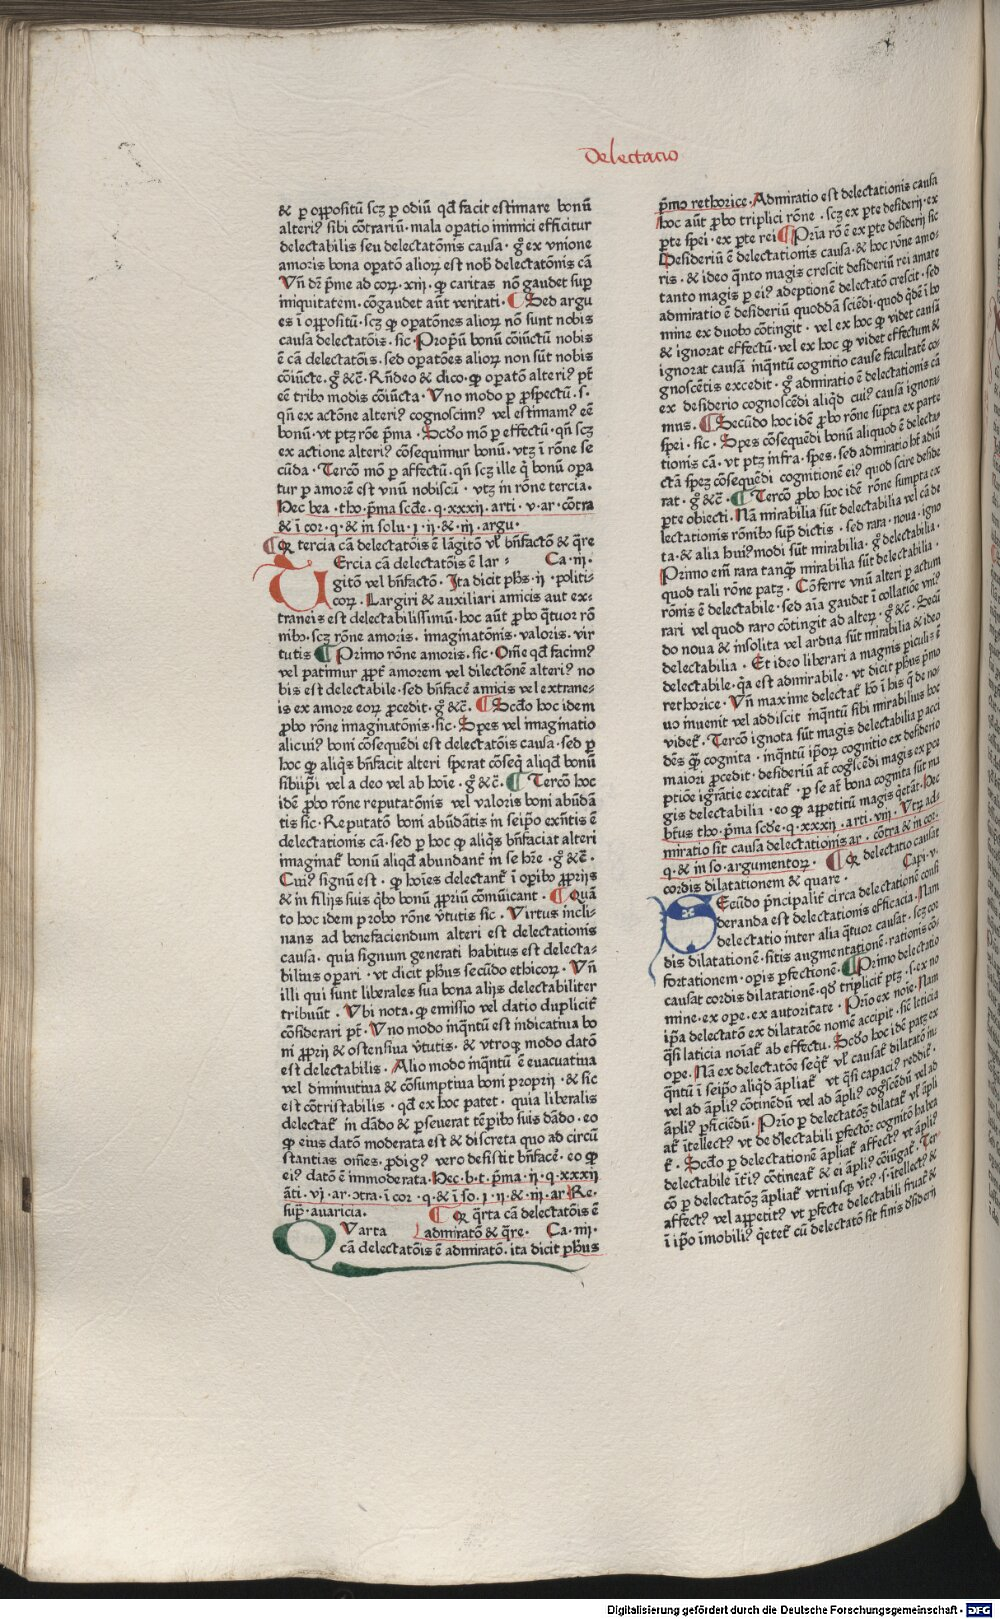 Delectacio
& ꝑ oppositū scꝫ ꝑ odiū qd̄ facit estimare bonū
alteriꝰ sibi cōtrariū · mala oꝑatio inimici efficitur
delectabilis seu delectatōnis causa · gͦ ex vnione
amoris bona oꝑatō alioꝝ est nob̄ delectatōnis cā
Vn̄ dr̄ p̄me ad coꝝ · xiij · ꝙ caritas nō gaudet suꝑ
iniquitatem · cōgaudet aūt veritati · ¶ Sed argu
es ī oppositū · scꝫ ꝙ oꝑatōnes alioꝝ nō sunt nobis
causa delectatōis · sic · Propriū bonū cōiūctū nobis
ē cā delectatōis · sed oꝑatōes alioꝝ non sūt nobis
cōiūcte · gͦ &c̄ · Rn̄deo & dico · ꝙ oꝑatō alteriꝰ pt̄
eē tribꝰ modis cōiūcta · Vno modo ꝑ ꝓspectū · s ·
qn̄ ex actōne alteriꝰ cognoscimꝰ vel estimamꝰ eē
bonū · vt ptꝫ rōe p̄ma · Scd̄o mō ꝑ effectū · qn̄ scꝫ
ex actione alteriꝰ cōsequimur bonū · vtꝫ ī rōne se
cūda · Tercō mō ꝑ affectū · qn̄ scꝫ ille q̄ bonū oꝑa
tur ꝑ amorē est vnū nobiscū · vtꝫ in rōne tercia ·
Hec bea · tho · p̄ma scd̄e · q · xxxij · arti · v · ar · cōtra
& ī cor · q · & in solu · i · ij · & · iij · argu ·
¶ Qꝛ tercia cā delectatōis ē lāgitō vl̄ bn̄factō & q̄re
TErcia cā delectatōis ē lar⸗ Ca · iij ·
gitō vel bn̄factō · Ita dicit phs̄ · ij · politi⸗
coꝝ · Largiri & auxiliari amicis aut ex⸗
traneis est delectabilissimū · hoc aūt ꝓbo q̄tuor rō
nibꝰ · scꝫ rōne amoris · imaginatōnis · valoris · vir
tutis ¶ Primo rōne amoris · sic · Om̄e qd̄ facimꝰ
vel patimur ꝓpt̄ amorem vel dilectōnē alteriꝰ no
bis est delectabile · sed bn̄facē amicis vel extrane⸗
is ex amore eoꝝ ꝓcedit · gͦ &c̄ · ¶ Scd̄o hoc idem
ꝓbo rōne imaginatōnis · sic · Spes vel imaginatio
alicuiꝰ boni cōsequēdi est delectatōis causa · sed ꝑ
hoc ꝙ aliq̄s bn̄facit alteri sperat cōseq̄ aliqd̄ bonū
sibiip̄i vel a deo vel ab hoīe · gͦ &c̄ · ¶ Tercō hoc
idē ꝓbo rōne reputatōnis vel valoris boni abūdā
tis sic · Reputatō boni abūdātis in seip̄o exn̄tis ē
delectationis cā · sed ꝑ hoc ꝙ aliq̄s bn̄faciat alteri
imaginat̄ bonū aliqd̄ abundant̄ in se hr̄e · gͦ &c̄ ·
Cuiꝰ signū est · ꝙ hoīes delectant̄ ī oꝑibꝰ ꝓprijs
& in filijs suis q̄bꝰ bonū ꝓpriū cōmūicant · ¶ Quā
to hoc idem probo rōne v̄tutis sic · Virtus incli⸗
nans ad benefaciendum alteri est delectationis
causa · quia signum generati habitus est delecta⸗
biliꝰ oꝑari · vt dicit phūs secūdo ethicoꝝ · Vn̄
illi qui sunt liberales sua bona alijs delectabiliter
tribuūt · Vbi nota · ꝙ emissio vel datio duplicit̄
cōsiderari pt̄ · Vno modo inq̄ntū est indicatiua bo
ni ꝓprij & ostensiua v̄tutis · & vtroqꝫ modo datō
est delectabilis · Alio modo inq̄ntū ē euacuatiua
vel diminutiua & cōsumptiua boni proprij · & sic
est cōtristabilis · qd̄ ex hoc patet · quia liberalis
delectat̄ in dādo & ꝑseuerat tēꝑibꝰ suis dādo · eo
ꝙ eius datō moderata est & discreta quo ad circū
stantias om̄es · ꝓdigꝰ vero desistit bn̄facē · eo ꝙ
eiꝰ datō ē immoderata · Hec · b · t · p̄ma · ij · q · xxxij
āti · vj · ar · ↄtra · ī cor · q · & ī so · i · ij · & · iij · ar Re ·
suꝑ · auaricia · ¶ Qꝛ q̄rta cā delectatōis ē
QVarta admiratō & q̄re · Ca · iiij ·
cā delectatōis ē admiratō · ita dicit phūs
p̄mo rethorice · Admiratio est delectationis causa
hoc aūt ꝓbo triplici rōne · scꝫ ex ꝑte desiderij · ex
ꝑte spei · ex ꝑte rei ¶ Pria rō ē ex ꝑte desiderij sic
Desideriū ē delectationis causa · & hoc rōne amo⸗
ris · & ideo q̄nto magis crescit desideriū rei amate
tanto magis ꝑ eiꝰ adeptionē delectatō crescit · sed
admiratio ē desideriū quoddā sciēdi · quod q̄dē ī ho
mine ex duobꝰ cōtingit · vel ex hoc ꝙ videt causā
& ignorat effectū · vel ex hoc ꝙ videt effectum &
ignorat causā inq̄ntū cognitio cause facultatē co⸗
gnoscētis excedit · gͦ admiratio ē delectationis cā
ex desiderio cognoscēdi aliqd̄ cuiꝰ causā ignora⸗
mus · ¶ Secūdo hoc idē ꝓbo rōne sūpta ex parte
spei · sic · Spes cōsequēdi bonū aliquod ē delecta⸗
tionis cā · vt ptꝫ infra · spes · sed admiratio hꝫ adiū
ctā speꝫ cōsequēdi cognitionē eiꝰ quod scire deside
rat · gͦ &c̄ · ¶ Tercō ꝓbo hoc idē rōne sumpta ex
ꝑte obiecti · Nā mirabilia sūt delectabilia vel cā de
lectationis rōnibꝰ suꝑ dictis · sed rara · noua · igno
ta · & alia huiꝰmodi sūt mirabilia · gͦ delectabilia ·
Primo em̄ rara tanqꝫ mirabilia sūt delectabilia ·
quod tali rōne patꝫ · Cōferre vnū alteri ꝑ actum
rōnis ē delectabile · sed aīa gaudet ī collatiōe vniꝰ
rari vel quod raro cōtingit ad alteꝝ · gͦ &c̄ · Secū
do noua & insolita vel ardua sūt mirabilia & ideo
delectabilia · Et ideo liberari a magnis ꝑiculis ē
delectabile · q̄a est admirabile · vt dicit phūs p̄mo
rethorice · Vn̄ maxime delectat̄ hō ī his q̄ de no⸗
uo inuenit vel addiscit inq̄ntū sibi mirabilius hoc
videt̄ · Tercō ignota sūt magis delectabilia ꝑ acci
dēs qꝫ cognita · inq̄ntū ip̄oꝝ cognitio ex desiderio
maiori ꝓcedit · desideriū at̄ cogͦscēdi magis ex ꝑce
ptiōe igrātie excitat̄ · ꝑ se at̄ bona cognita sūt ma
gis delectabilia · eo ꝙ appetitū magis q̄etāt · Hec
bt̄us tho · p̄ma scd̄e · q · xxxij · arti · viij · Vtꝝ ad⸗
miratio sit causa delectationis ar · cōtra & in cor ·
q · & in so · argumentoꝝ · ¶ Qꝛ delectatio causat
cordis dilatationem & quare · Capi · v ·
SEcūdo p̄ncipalit̄ circa delectationē consi
deranda est delectationis efficacia · Nam
delectatio inter alia q̄tuor causat · scꝫ cor
dis dilatationē · sitis augmentationē · rationis cō⸗
fortationem · oꝑis ꝑfectionē · ¶ Primo delectatio
causat cordis dilatationē · qd̄ triplicit̄ ptꝫ · s · ex no
mine · ex oꝑe · ex autoritate · Prio ex noīe · Nam
ip̄a delectatō ex dilatatōe nomē accipit · sic̄ leticia
q̄si laticia noīat̄ ab effectu · Scd̄o hoc idē patꝫ ex
oꝑe · Nā ex delectatōe seq̄t̄ vl̄ causat̄ dilatatō in⸗
q̄ntū ī seip̄o aliqd̄ āpliat̄ vt q̄si capaciꝰ reddit̄ ·
vel ad āpliꝰ cōtinēdū vel ad āpliꝰ cogͦscēdū vel ad
āpliꝰ ꝑficiēdū · Prio ꝑ delectatōꝫ dilatat̄ vl̄ āpli
at̄ itellectꝰ vt de dlectabili ꝑfectōr cognitō habea
t̄ · Scd̄o ꝑ delectationē āpliat̄ affectꝰ vt āpliꝰ
delectabile īt̄iꝰ cōtineat̄ & ei āpliꝰ cōiūgat̄ · Ter⸗
cō ꝑ delectatōꝫ āpliat̄ vtriusqꝫ v̄tꝰ · s · itellectꝰ &
affectꝰ vel appetitꝰ vt ꝑfecte delectabili fruat̄ &
ī ip̄o imobiliꝰ q̄etet̄ cū delectatō sit finis dsiderij
Digitalisierung gefördert durch die Deutsche Forschungsgemeinschaft · DFG